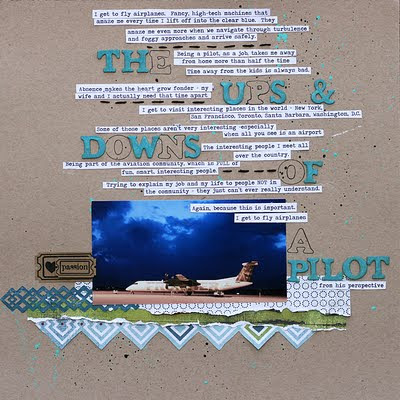 I get to fly airplanes.  Fancy, high-tech machines that
amaze me every time I lift off into the clear blue.  They
amaze me even more when we navigate through turbulence
and foggy approaches and arrive safely.
THE UPS &
Being a pilot, as a job, takes me away
from home more than half the time
Time away from the kids is always bad.
Absence makes the heart grow fonder - my
wife and I actually need that time apart
I get to visit interesting places in the world - New York,
San Francisco, Toronto, Santa Barbara, Washington, D.C.
Some of those places aren't very interesting -especially
when all you see is an airport
DOWNS
The interesting people I meet all
over the country.
Being part of the aviation community, which is FULL of
fun, smart, interesting people.
OF
Trying to explain my job and my life to people NOT in
the community - they just can't ever really understand.
Again, because this is important.
I get to fly airplanes
A
passion
PILOT
from his perspective